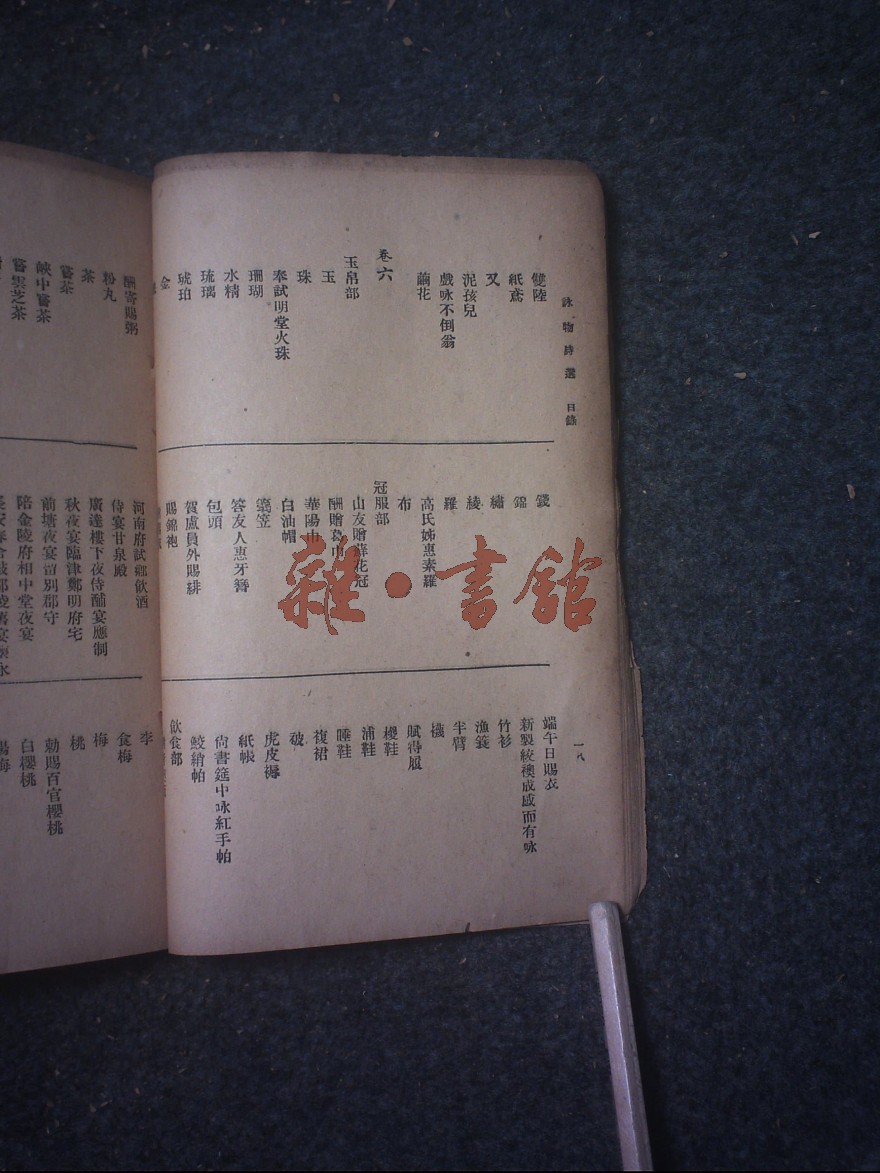 詠物詩選 目錄
雙陸
紙鳶
又
泥孩兒
戲咏不倒翁
繭花
卷六
玉帛部
玉
珠
奉試明堂火珠
珊瑚
水精
琉璃
琥珀
金
錢
錦
繡
綾
羅
高氏姊惠素羅
布
冠服部
山友贈蘚花冠
酬贈葛巾
華陽巾
白油帽
簑笠
答友人惠牙簪
包頭
賀盧員外賜緋
賜錦袍
一八
端午日賜衣
新製綾襖成感而有咏
竹衫
漁簑
半臂
襪
賦得履
椶鞋
蒲鞋
睡鞋
複裙
被
虎皮褥
紙帳
尙書筵中咏紅手帕
鮫綃帕
飲食部
酬寄賜粥
粉丸
茶
嘗茶
峽中嘗茶
嘗雲芝茶
河南府試鄉飲酒
侍宴甘泉殿
廣達樓下夜侍酺宴應制
秋夜宴臨津鄭明府宅
前塘夜宴留別郡守
陪金陵府相中堂夜宴
李
食梅
梅
桃
勅賜百官櫻桃
白櫻桃
楊梅
雜·書館